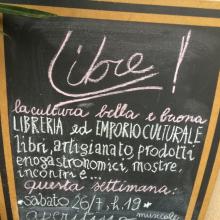 Libre!
la cultura bella e buona
LIBRERIA ed EMPORIO CULTURALE
libri, artigianato, prodotti
enogastronomici, mostre,
incontri...
questa settimana:
sabato 26/7, h. 19
aperitivo musicale